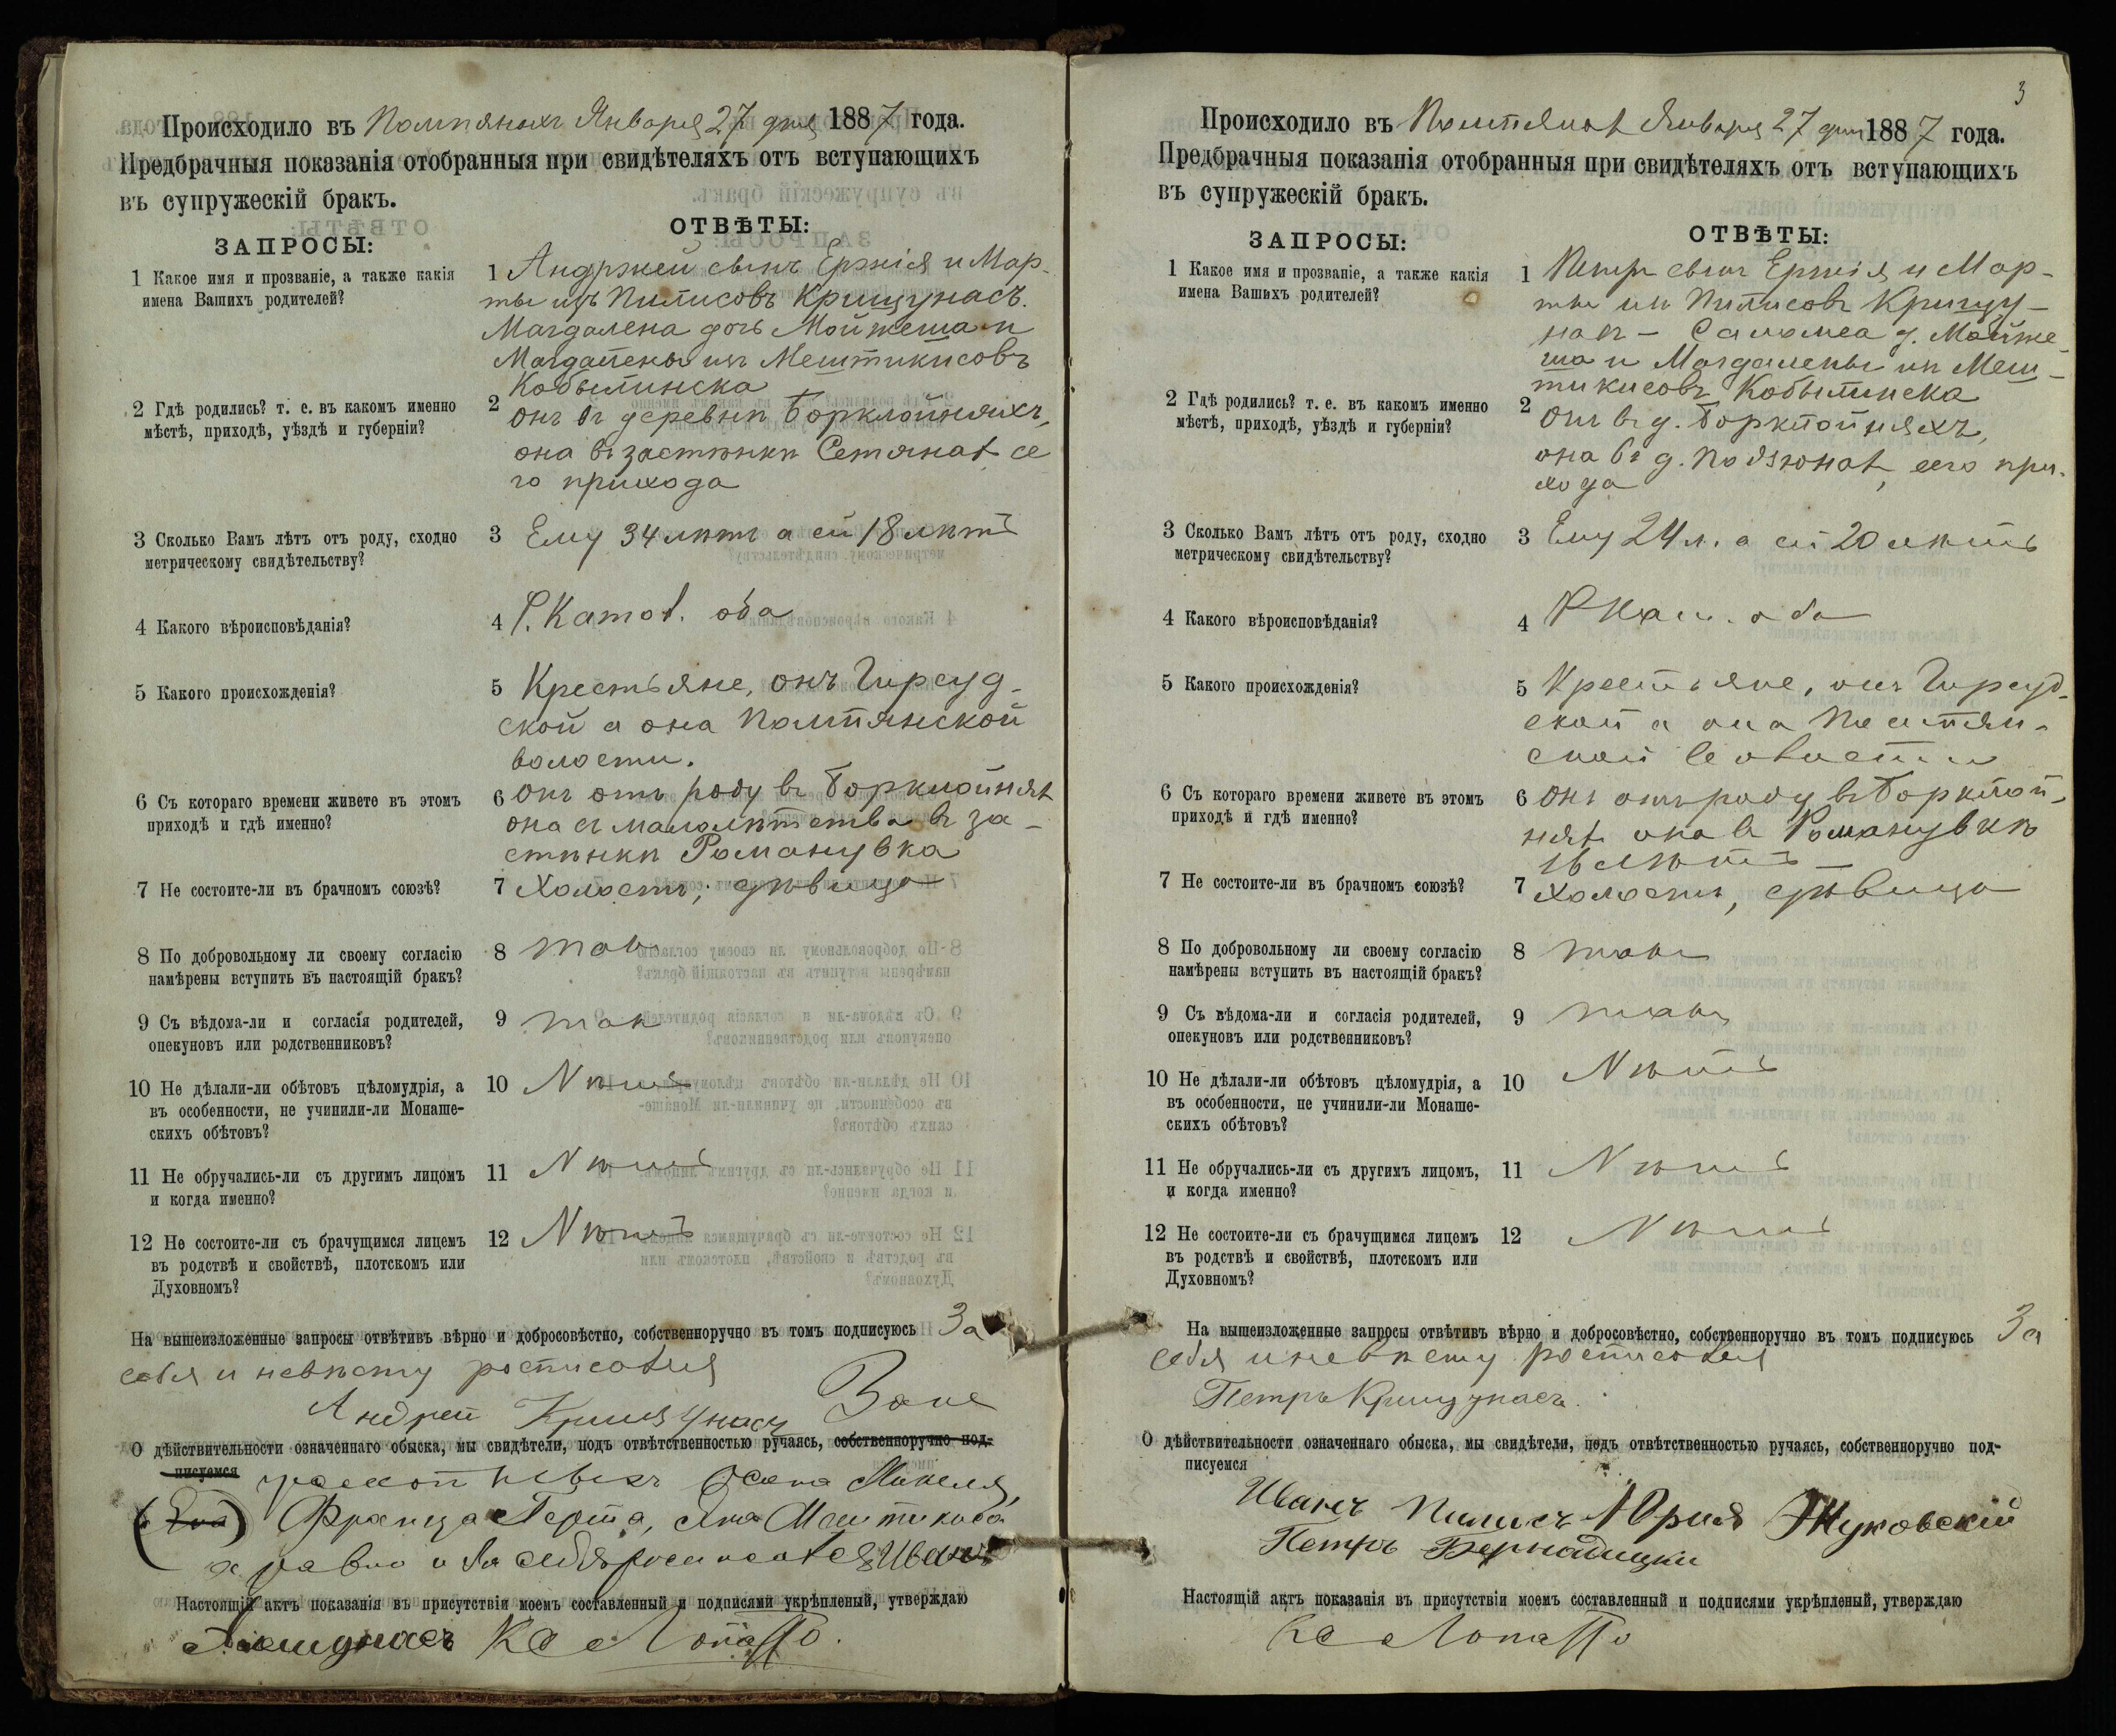 Происходило въ Помпянахъ Января 27 дня 1887 года.
Предбрачныя показанія отобранныя при свидѣтеляхъ отъ вступающихъ
въ супружескій бракъ.
ЗАПРОСЫ:
ОТВѢТЫ:
1 Какое имя и прозваніе, а также какія
имена Вашихъ родителей?
1 Андржей сынъ Ержія и Мар-
ты изъ Пилисовъ Крищунасъ.
Магдалена дочь Мойжеша и
Магдалены изъ Мештикисовъ
Кобылинска
2 Гдѣ родились? т. е. въ какомъ именно
мѣстѣ, приходѣ, уѣздѣ и губерніи?
2 онъ въ деревнѣ Борклойняхъ,
она въ застѣнкѣ се
го прихода
3 Сколько Вамъ лѣтъ отъ роду, сходно
метрическому свидѣтельству?
3 Ему 34 лѣтъ а ей 18 лѣтъ
4 Какого вѣроисповѣданія?
4 Р. Катол. оба
5 Какого происхожденія?
5 Крестьяне, онъ Гирсуд-
ской а она Помпянской
волости.
6 Съ котораго времени живете въ этомъ
приходѣ и гдѣ именно?
6 онъ отъ роду въ Борклойнях
она съ малолѣтства въ за-
стѣнкѣ Романувка
7 Не состоите-ли въ брачномъ союзѣ?
7 Холостъ, дѣвица
8 По добровольному ли своему согласію
намѣрены вступить въ настоящій бракъ?
8 так
9 Съ вѣдома-ли и согласія родителей,
опекуновъ или родственниковъ?
9 так
10 Не дѣлали-ли обѣтовъ цѣломудрія, а
въ особенности, не учинили-ли Монаше-
скихъ обѣтовъ?
10 Nѣтъ
11 Не обручались-ли съ другимъ лицомъ
и когда именно?
11 Nѣтъ
12 Не состоите-ли съ брачущимся лицемъ
въ родствѣ и свойствѣ, плотскомъ или
Духовномъ?
12 Nѣтъ
На вышеизложенные запросы отвѣтивъ вѣрно и добросовѣстно, собственноручно въ томъ подписуюсь За
себя и невѣсту росписался
Андрей Крищунасъ За не
О дѣйствительности означеннаго обыска, мы свидѣтели, подъ отвѣтственностью ручаясь, собственноручно под-
писуемся
Франца Яна
а равно и за себя росписался Иванъ
Настоящій актъ показанія въ присутствіи моемъ составленный и подписями укрѣпленый, утверждаю
Лопатто.
3
Происходило въ Помпянах Января 27 дня 1887 года.
Предбрачныя показанія отобранныя при свидѣтеляхъ отъ вступающихъ
въ супружескій бракъ.
ЗАПРОСЫ:
ОТВѢТЫ:
1 Какое имя и прозваніе, а также какія
имена Вашихъ родителей?
1 Петръ сынъ Ержія и Мар-
ты изъ Пилисовъ Крищу-
насъ - Саломеа д. Мойже-
ша и Магдалены изъ Меш-
тикисовъ Кобылинска
2 Гдѣ родились? т. е. въ какомъ именно
мѣстѣ, приходѣ, уѣздѣ и губерніи?
2 Онъ въ д. Борклойняхъ,
она въ д. сего при-
хода
3 Сколько Вамъ лѣтъ отъ роду, сходно
метрическому свидѣтельству?
3 Ему 24 л. а ей 20 лѣтъ
4 Какого вѣроисповѣданія?
4 Р Кат. оба
5 Какого происхожденія?
5 Крестьяне, онъ Гирсуд-
ской а она Помпян-
ской волости
6 Съ котораго времени живете въ этомъ
приходѣ и гдѣ именно?
6 Онъ отъ роду въ Борклой-
нях она в Романувкѣ
лѣтъ
7 Не состоите-ли въ брачномъ союзѣ?
7 Холостъ, дѣвица
8 По добровольному ли своему согласію
намѣрены вступить въ настоящій бракъ?
8 такъ
9 Съ вѣдома-ли и согласія родителей,
опекуновъ или родственниковъ?
9 такъ
10 Не дѣлали-ли обѣтовъ цѣломудрія, а
въ особенности, не учинили-ли Монаше-
скихъ обѣтовъ?
10 Nѣтъ
11 Не обручались-ли съ другимъ лицомъ,
и когда именно?
11 Nѣтъ
12 Не состоите-ли съ брачущимся лицемъ
въ родствѣ и свойствѣ, плотскомъ или
Духовномъ?
12 Nѣтъ
На вышеизложенные запросы отвѣтивъ вѣрно и добросовѣстно, собственноручно въ томъ подписуюсь За
себя и невѣсту росписался
Петръ Крищунасъ.
О дѣйствительности означеннаго обыска, мы свидѣтели, подъ отвѣтственностью ручаясь, собственноручно под-
писуемся
Иванъ Пилисъ Юрия Жуковскій
Петръ Бернадицки
Настоящій актъ показанія въ присутствіи моемъ составленный и подписями укрѣпленый, утверждаю
Лопатто